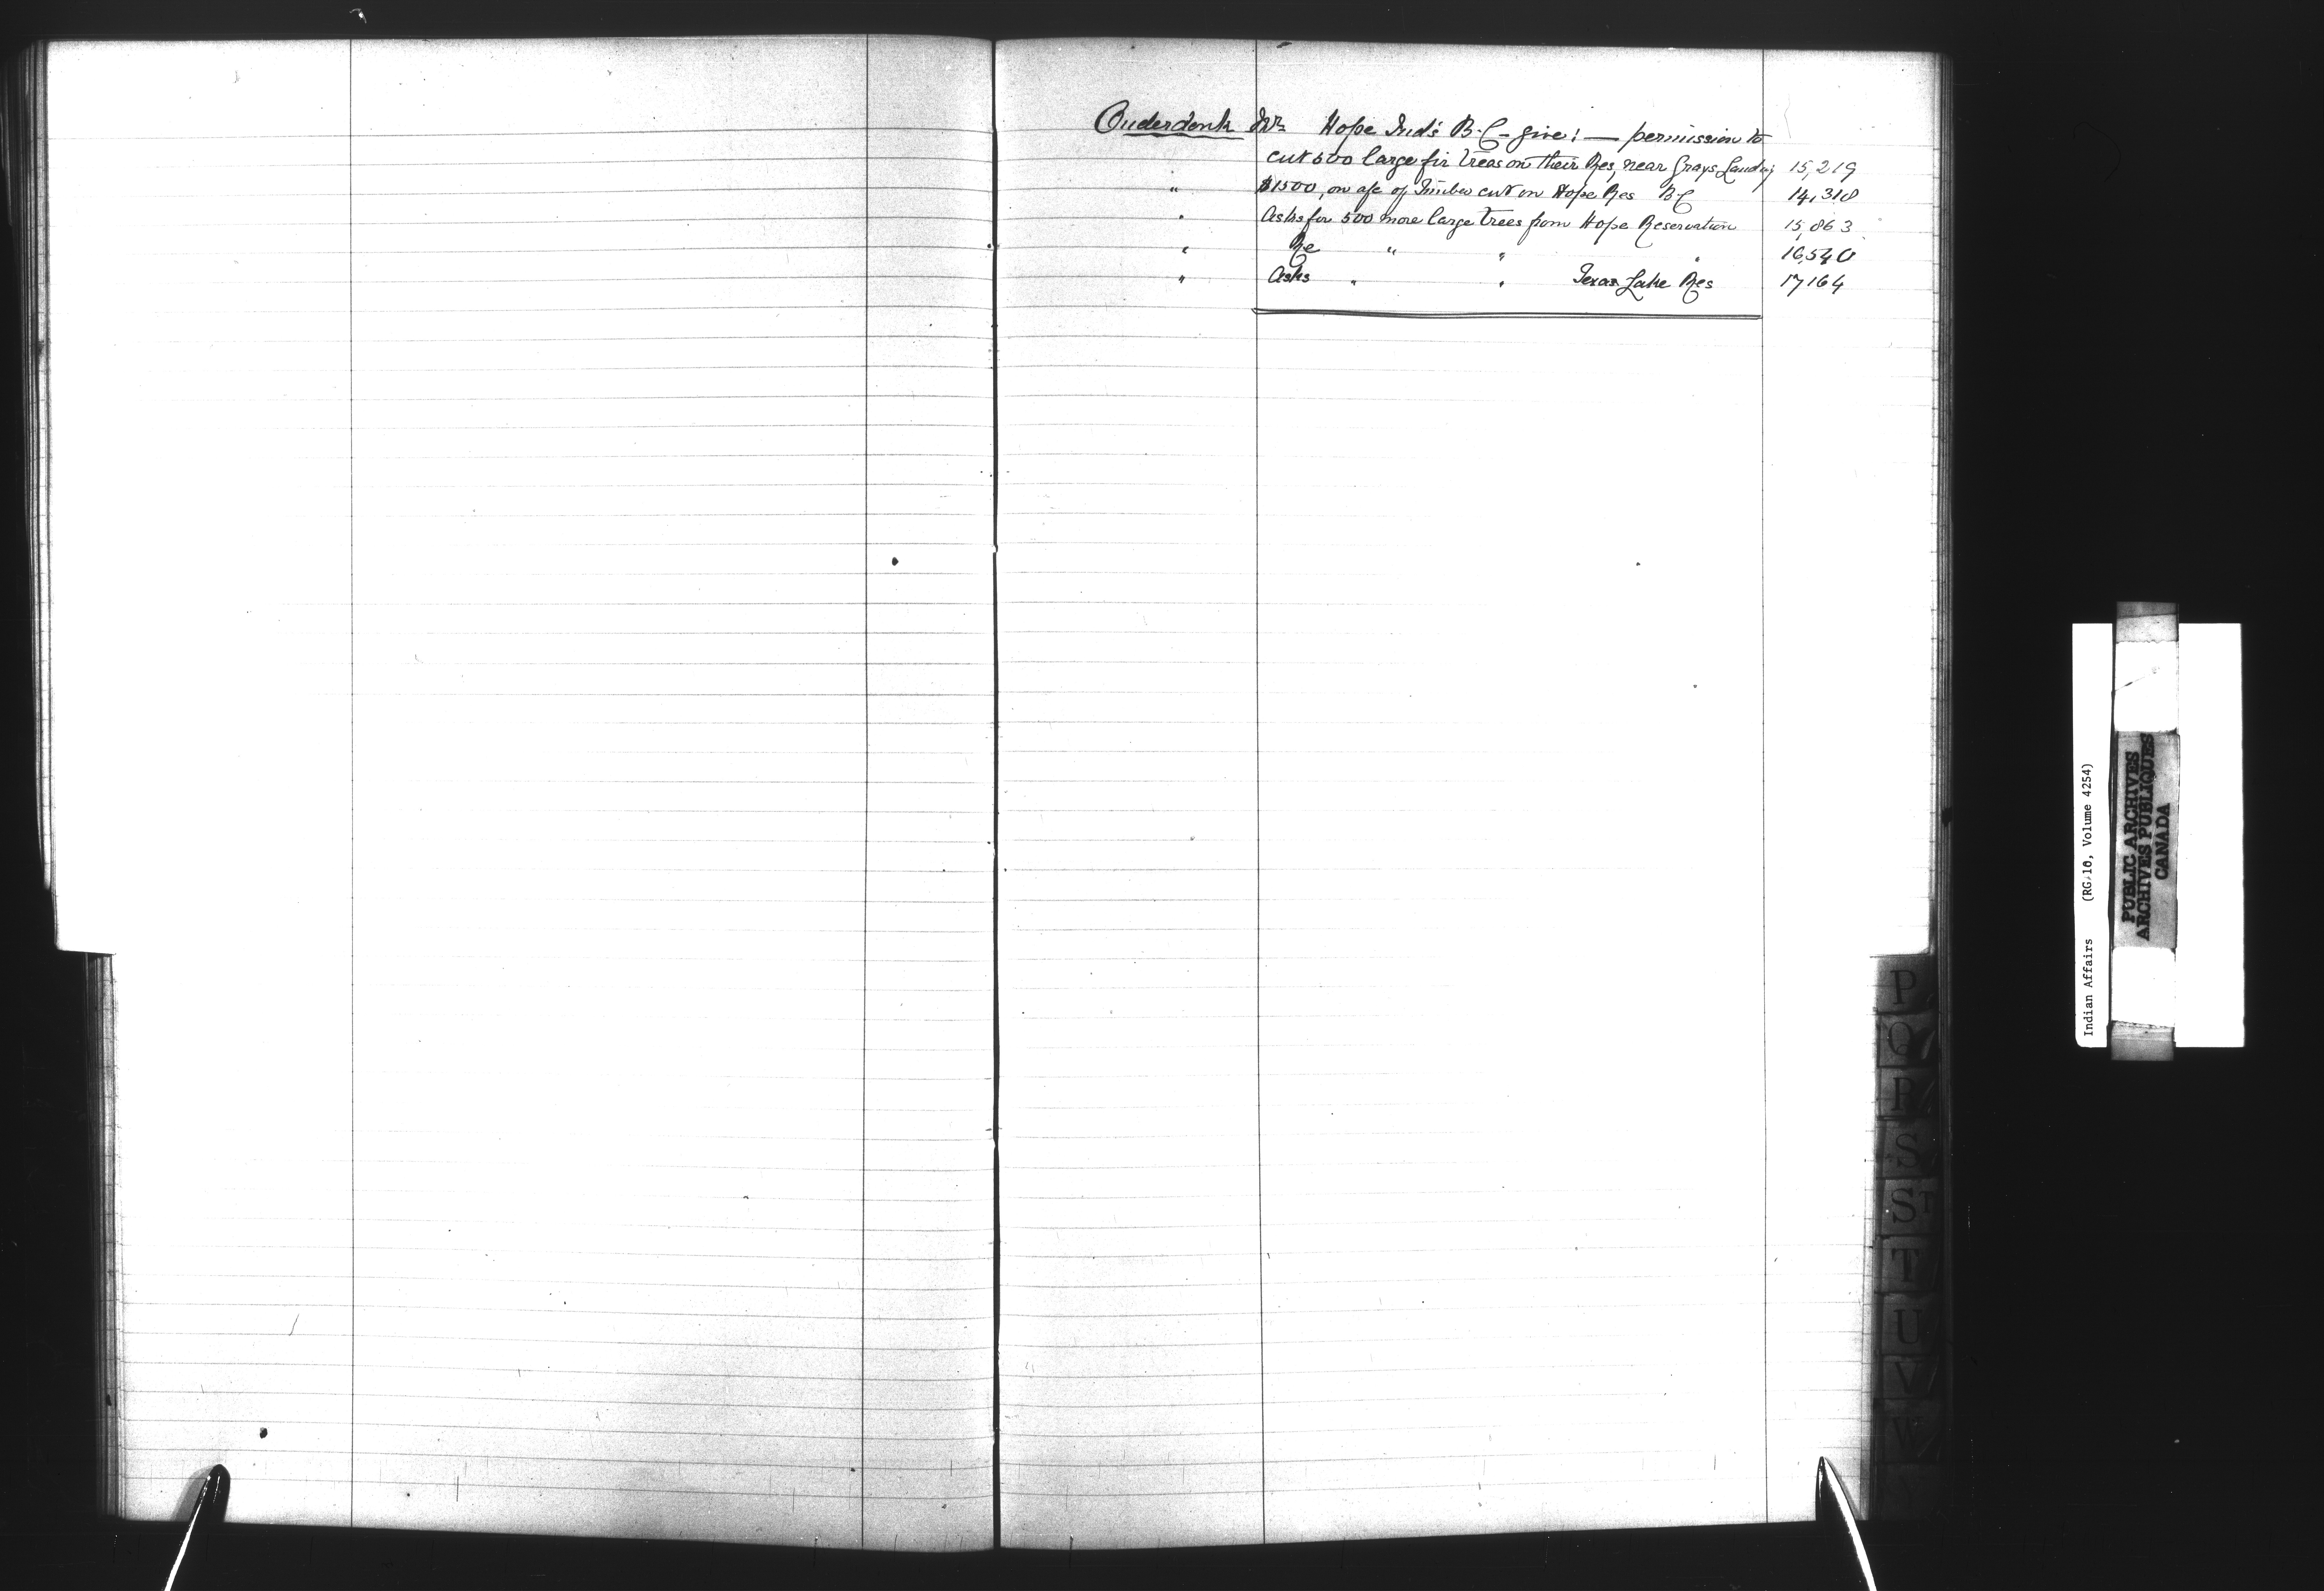 Onderdonk Mr Hope Ind's B.C - give! — permission to
cut 500 large fir trees on their Res, near Grays Landing 15,219
" $1500, on a/c of Timber cut on Hope Res B C 14,318
" Asks for 500 more large trees from Hope Reservation 15,863
" Re " " " 16,540
" Asks " " Texas Lake Res 17164
P
Q
R
S
ST
T
U
V
W
Indian Affairs (RG 10, Volume 4254)
PUBLIC ARCHIVES
ARCHIVES PUBLIQUES
CANADA